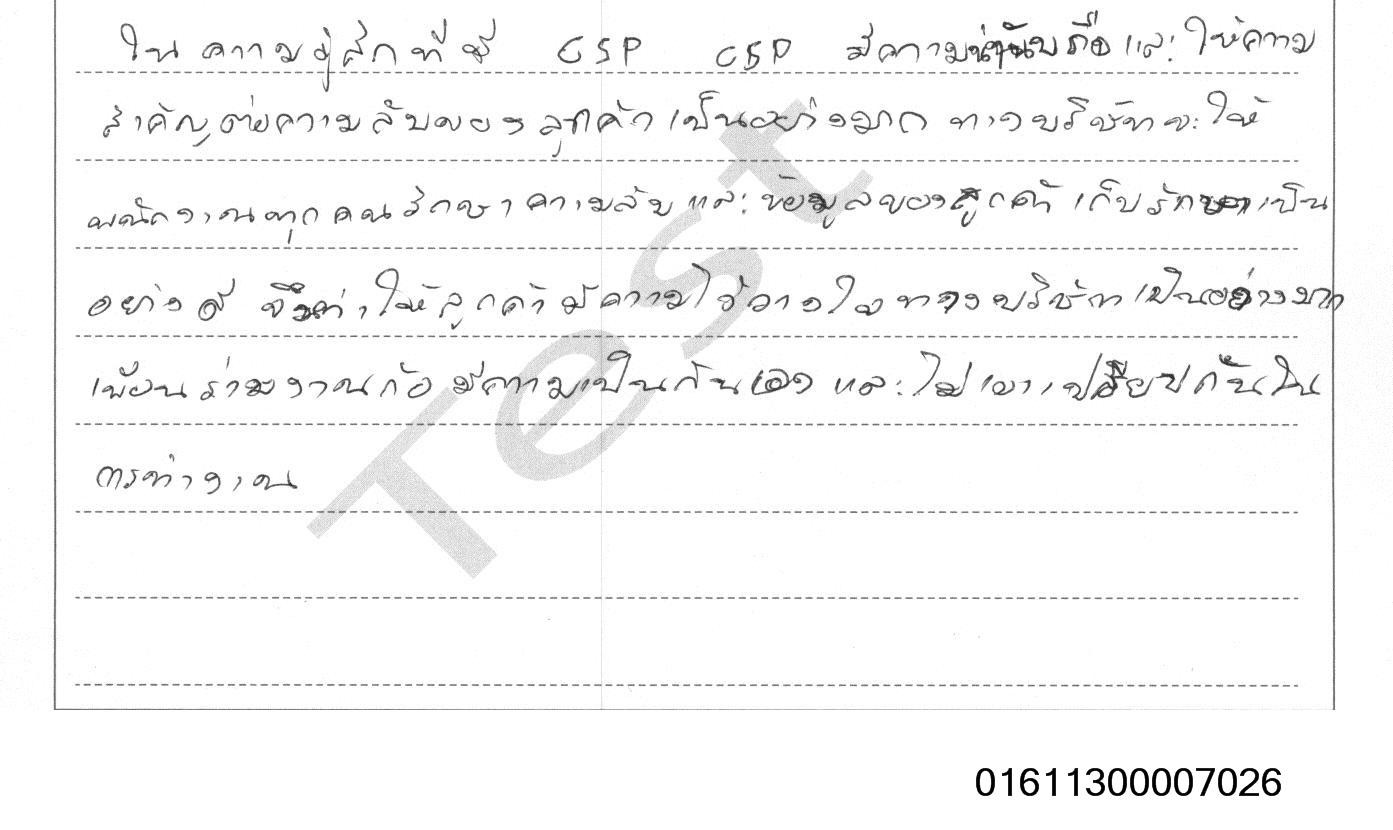 ในความรู้สึกที่มี CSP CSP มีความน่านับถือและให้ความ
สำคัญต่อความลับของลูกค้าเป็นอย่างมาก ทางบริษัทจะให้
พนักงานทุกคนรักษาความลับและข้อมูลของลูกค้า เก็บรักษาเป็น
อย่างดี จึงทำให้ลูกค้ามีความไว้วางใจทางบริษัทเป็นอย่างมาก
เพื่อนร่วมงานก็มีความเป็นกันเอง และไม่เอาเปรียบกันใน
การทำงาน
Test
01611300007026